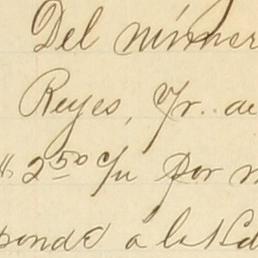 Del númer
Reyes, Jr. de
2 50 c/u por
ponde a la